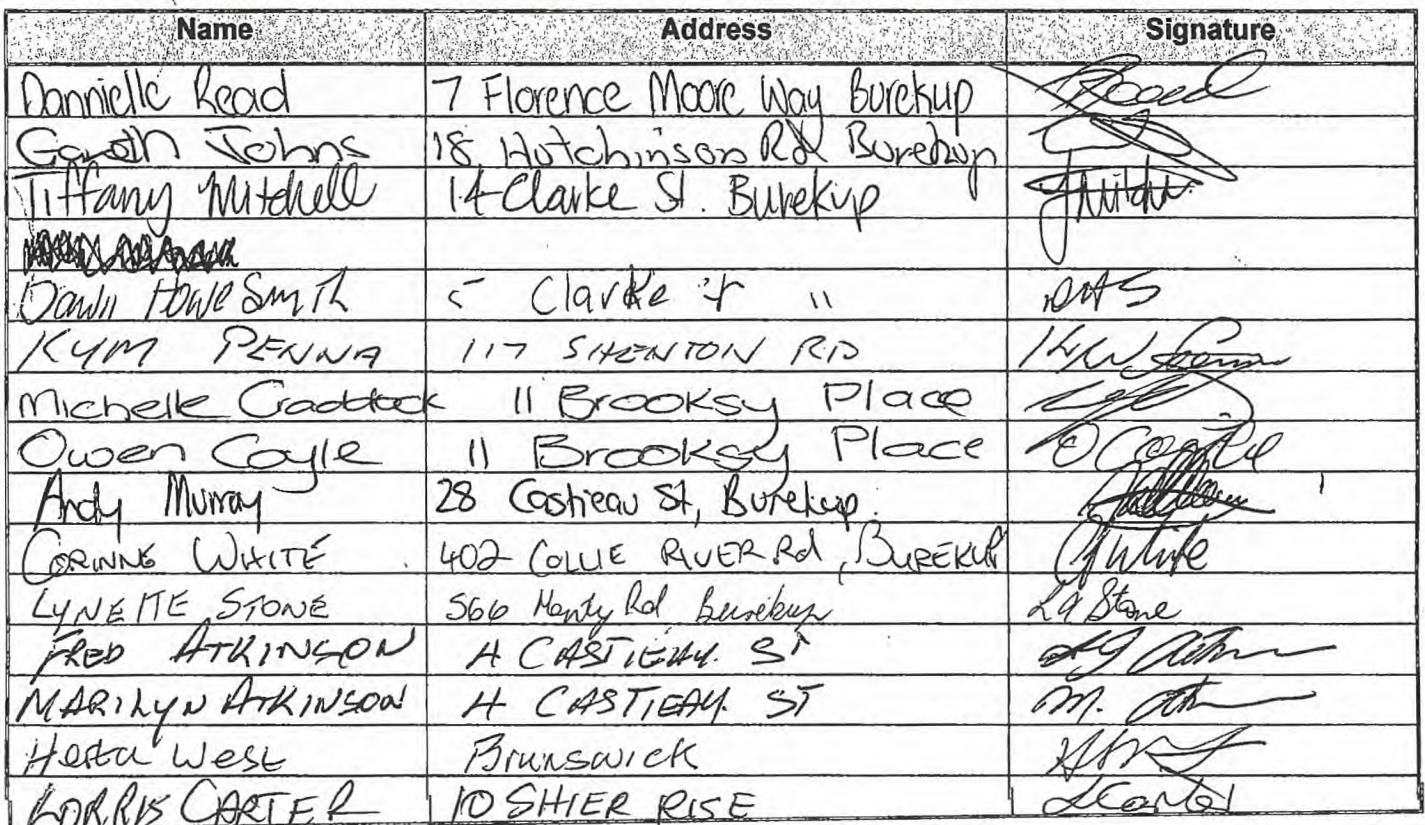 Name Address Signature
Dannielle Read 7 Florence Moore Way Burekup Read
Gareth Johns 18 Hutchinson Rd Burekup
Tiffany Mitchell 14 Clarke St. Burekup
Dawn Howe Smith 5 Clarke St " DHS
KYM PENNA 117 SHENTON RD
Michelle Craddock 11 Brooksy Place
Owen Coyle 11 Brooksy Place O Coyle
Andy Murray 28 Castieau St, Burekup.
CORINNE WHITE 402 COLLIE RIVER Rd, BUREKUP CWhite
LYNETTE STONE 566 Henty Rd Burekup LA Stone
FRED ATKINSON 4 CASTIEAU. ST
MARILYN ATKINSON 4 CASTIEAU. ST M.
Herta West Brunswick
LORRIS CARTER 10 SHIER RISE LCarter